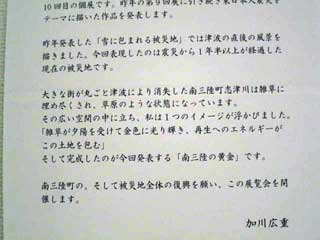 10回目の個展です。昨年の第９回展に引き続き東日本大震災を
テーマに描いた作品を発表します。
昨年発表した「雪に包まれる被災地」では津波の直後の風景を
描きました。今回表現したのは震災から１年半以上が経過した
現在の被災地です。
大きな街が丸ごと津波により消失した南三陸町志津川は雑草に
埋めつくされ、草原のような状態になっています。
その広い空間の中に立ち、私は１つのイメージが浮かびました。
「雑草が夕陽を受けて金色に光り輝き、再生へのエネルギーが
この土地を包む」
そして完成したのが今回発表する「南三陸の黄金」です。
南三陸町の、そして被災地全体の復興を願い、この展覧会を開
催します。
加川広重